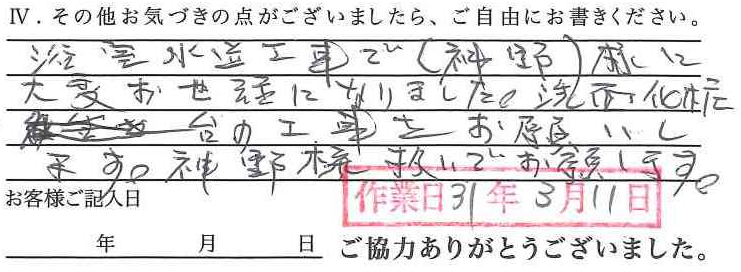 Ⅳ．その他お気づきの点がございましたら、ご自由にお書きください。
浴室水道工事で(神野)様に
大変お世話になりました。洗面化粧
台の工事をお願いし
ます。神野様扱いでお願します。
お客様ご記入日
作業日31年3月11日
年 月 日 ご協力ありがとうございました。